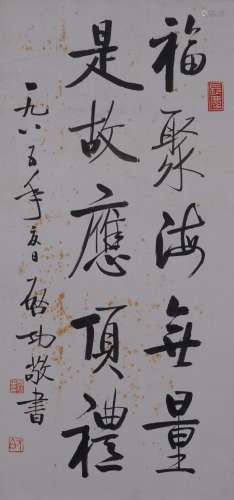 福聚海無量
是故應頂禮
一九八五年夏日 启功敬書